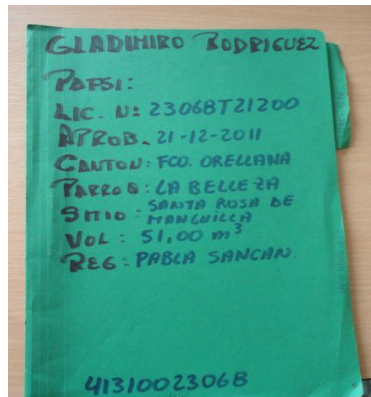 GLADIMIRO RODRIGUEZ
PAFSI:
LIC. N: 23068T21200
APROB. 21-12-2011
CANTON: FCO. ORELLANA
PARROQ: LA BELLEZA
SITIO: SANTA ROSA DE
MANGUILLA
VOL: 51,00 m³
REG: PABLA SANCAN.
41310023068